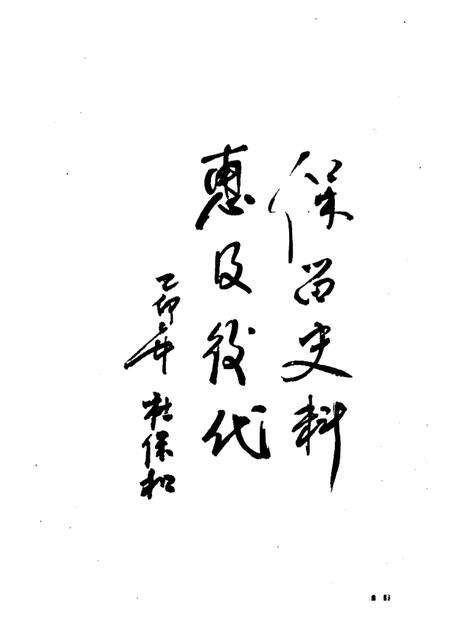 保留史料
惠及後代
己卯年 杜保和